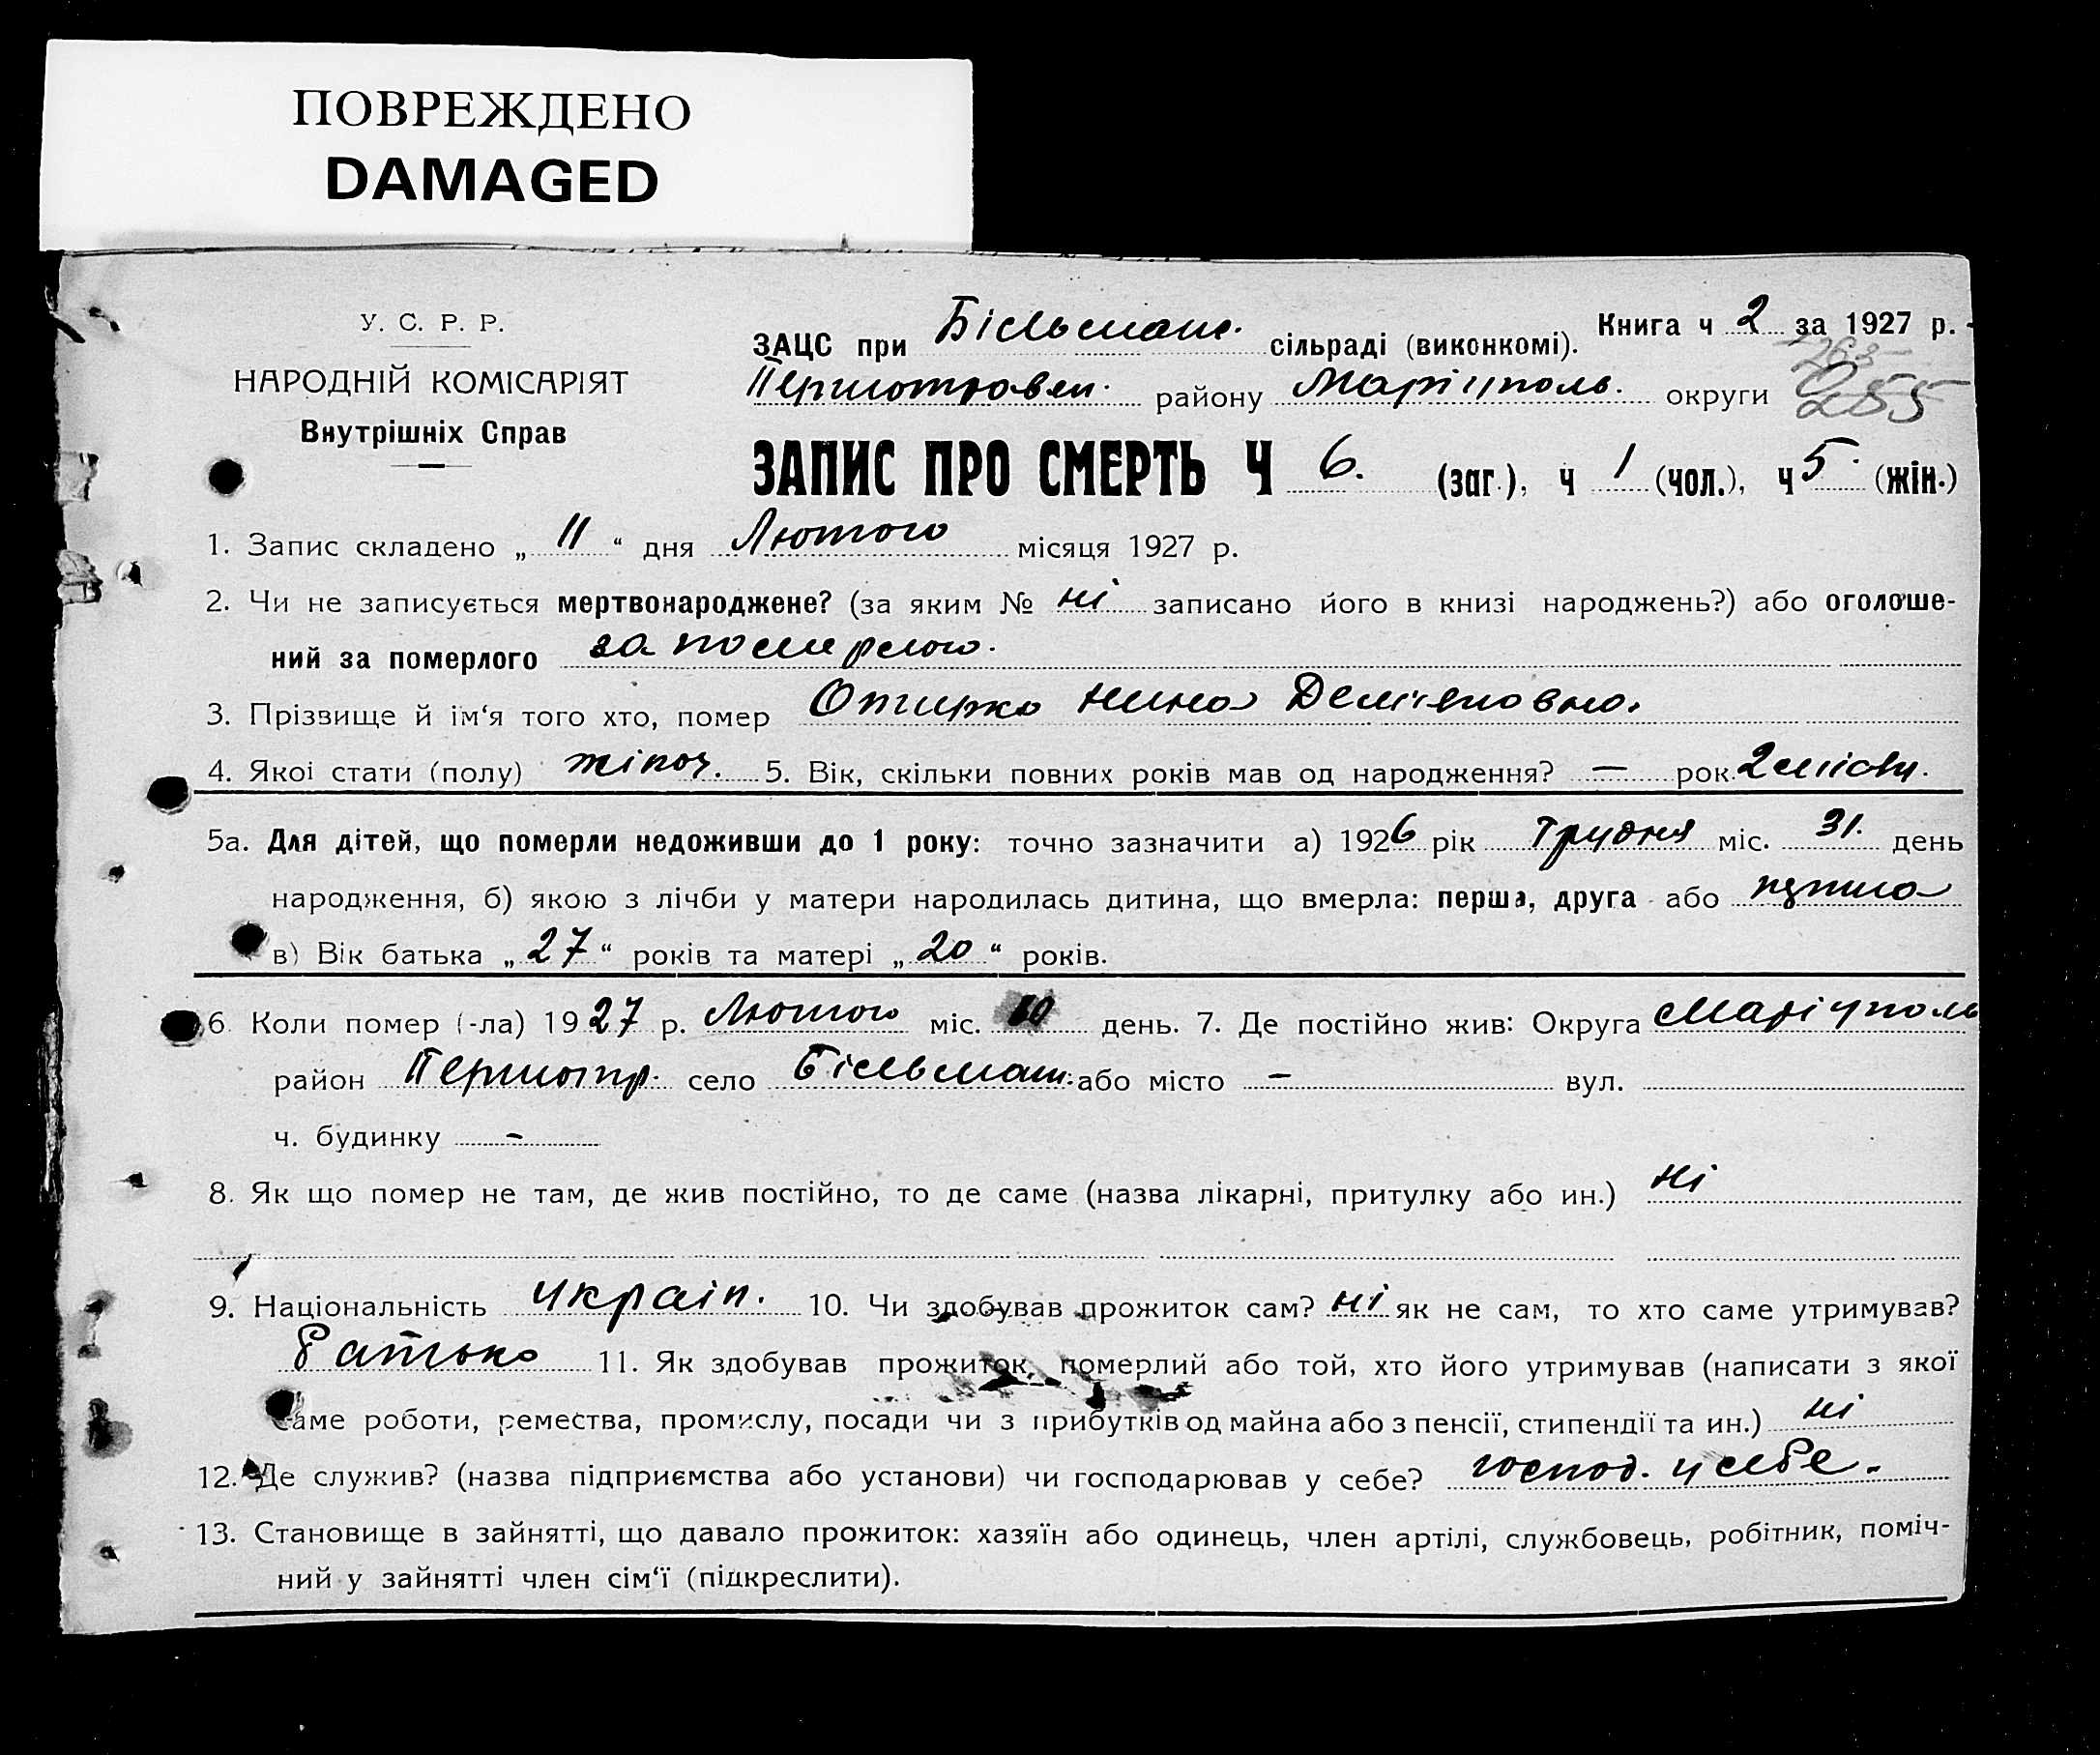 ПОВРЕЖДЕНО
DAMAGED
У. С. Р. Р.
НАРОДНІЙ КОМІСАРІЯТ
Внутрішніх Справ
Книга ч 2 за 1927 р.
ЗАЦС при Більманс. сільраді (виконкомі).
Першотравен. району Маріуполь. округи 255
ЗАПИС ПРО СМЕРТЬ Ч 6. (заг.), ч 1 (чол.), ч 5. (жін.)
1. Запис складено „ 11 “ дня Лютого місяця 1927 р.
2. Чи не записується мертвонароджене? (за яким № ні записано його в книзі народжень?) або оголоше-
ний за померлого за померлого.
3. Прізвище й ім‘я того хто, помер Отирко Нина Демʼяновна.
4. Якої стати (полу) жіноч. 5. Вік, скільки повних років мав од народження? — рок. 2 місяч.
5а. Для дітей, що померли недоживши до 1 року: точно зазначити а) 1926 рік Грудня міс. 31. день
народження, б) якою з лічби у матери народилась дитина, що вмерла: перша, друга або
в) Вік батька „ 27 “ років та матері „ 20 “ років.
6. Коли помер (-ла) 1927 р. Лютого міс. 10 день. 7. Де постійно жив: Округа Маріуполь
район Першотр. село Більман. або місто – вул.
ч. будинку –
8. Як що помер не там, де жив постійно, то де саме (назва лікарні, притулку або ин.) ні
9. Національність україн. 10. Чи здобував прожиток сам? ні як не сам, то хто саме утримував?
Батько 11. Як здобував прожиток, померлий або той, хто його утримував (написати з якої
саме роботи, ремества, промислу, посади чи з прибутків од майна або з пенсії, стипендії та ин.) ні
12. Де служив? (назва підприємства або установи) чи господарював у себе? господ. у себе.
13. Становище в зайнятті, що давало прожиток: хазяїн або одинець, член артілі, службовець, робітник, поміч-
ний у зайнятті член сім‘ї (підкреслити).